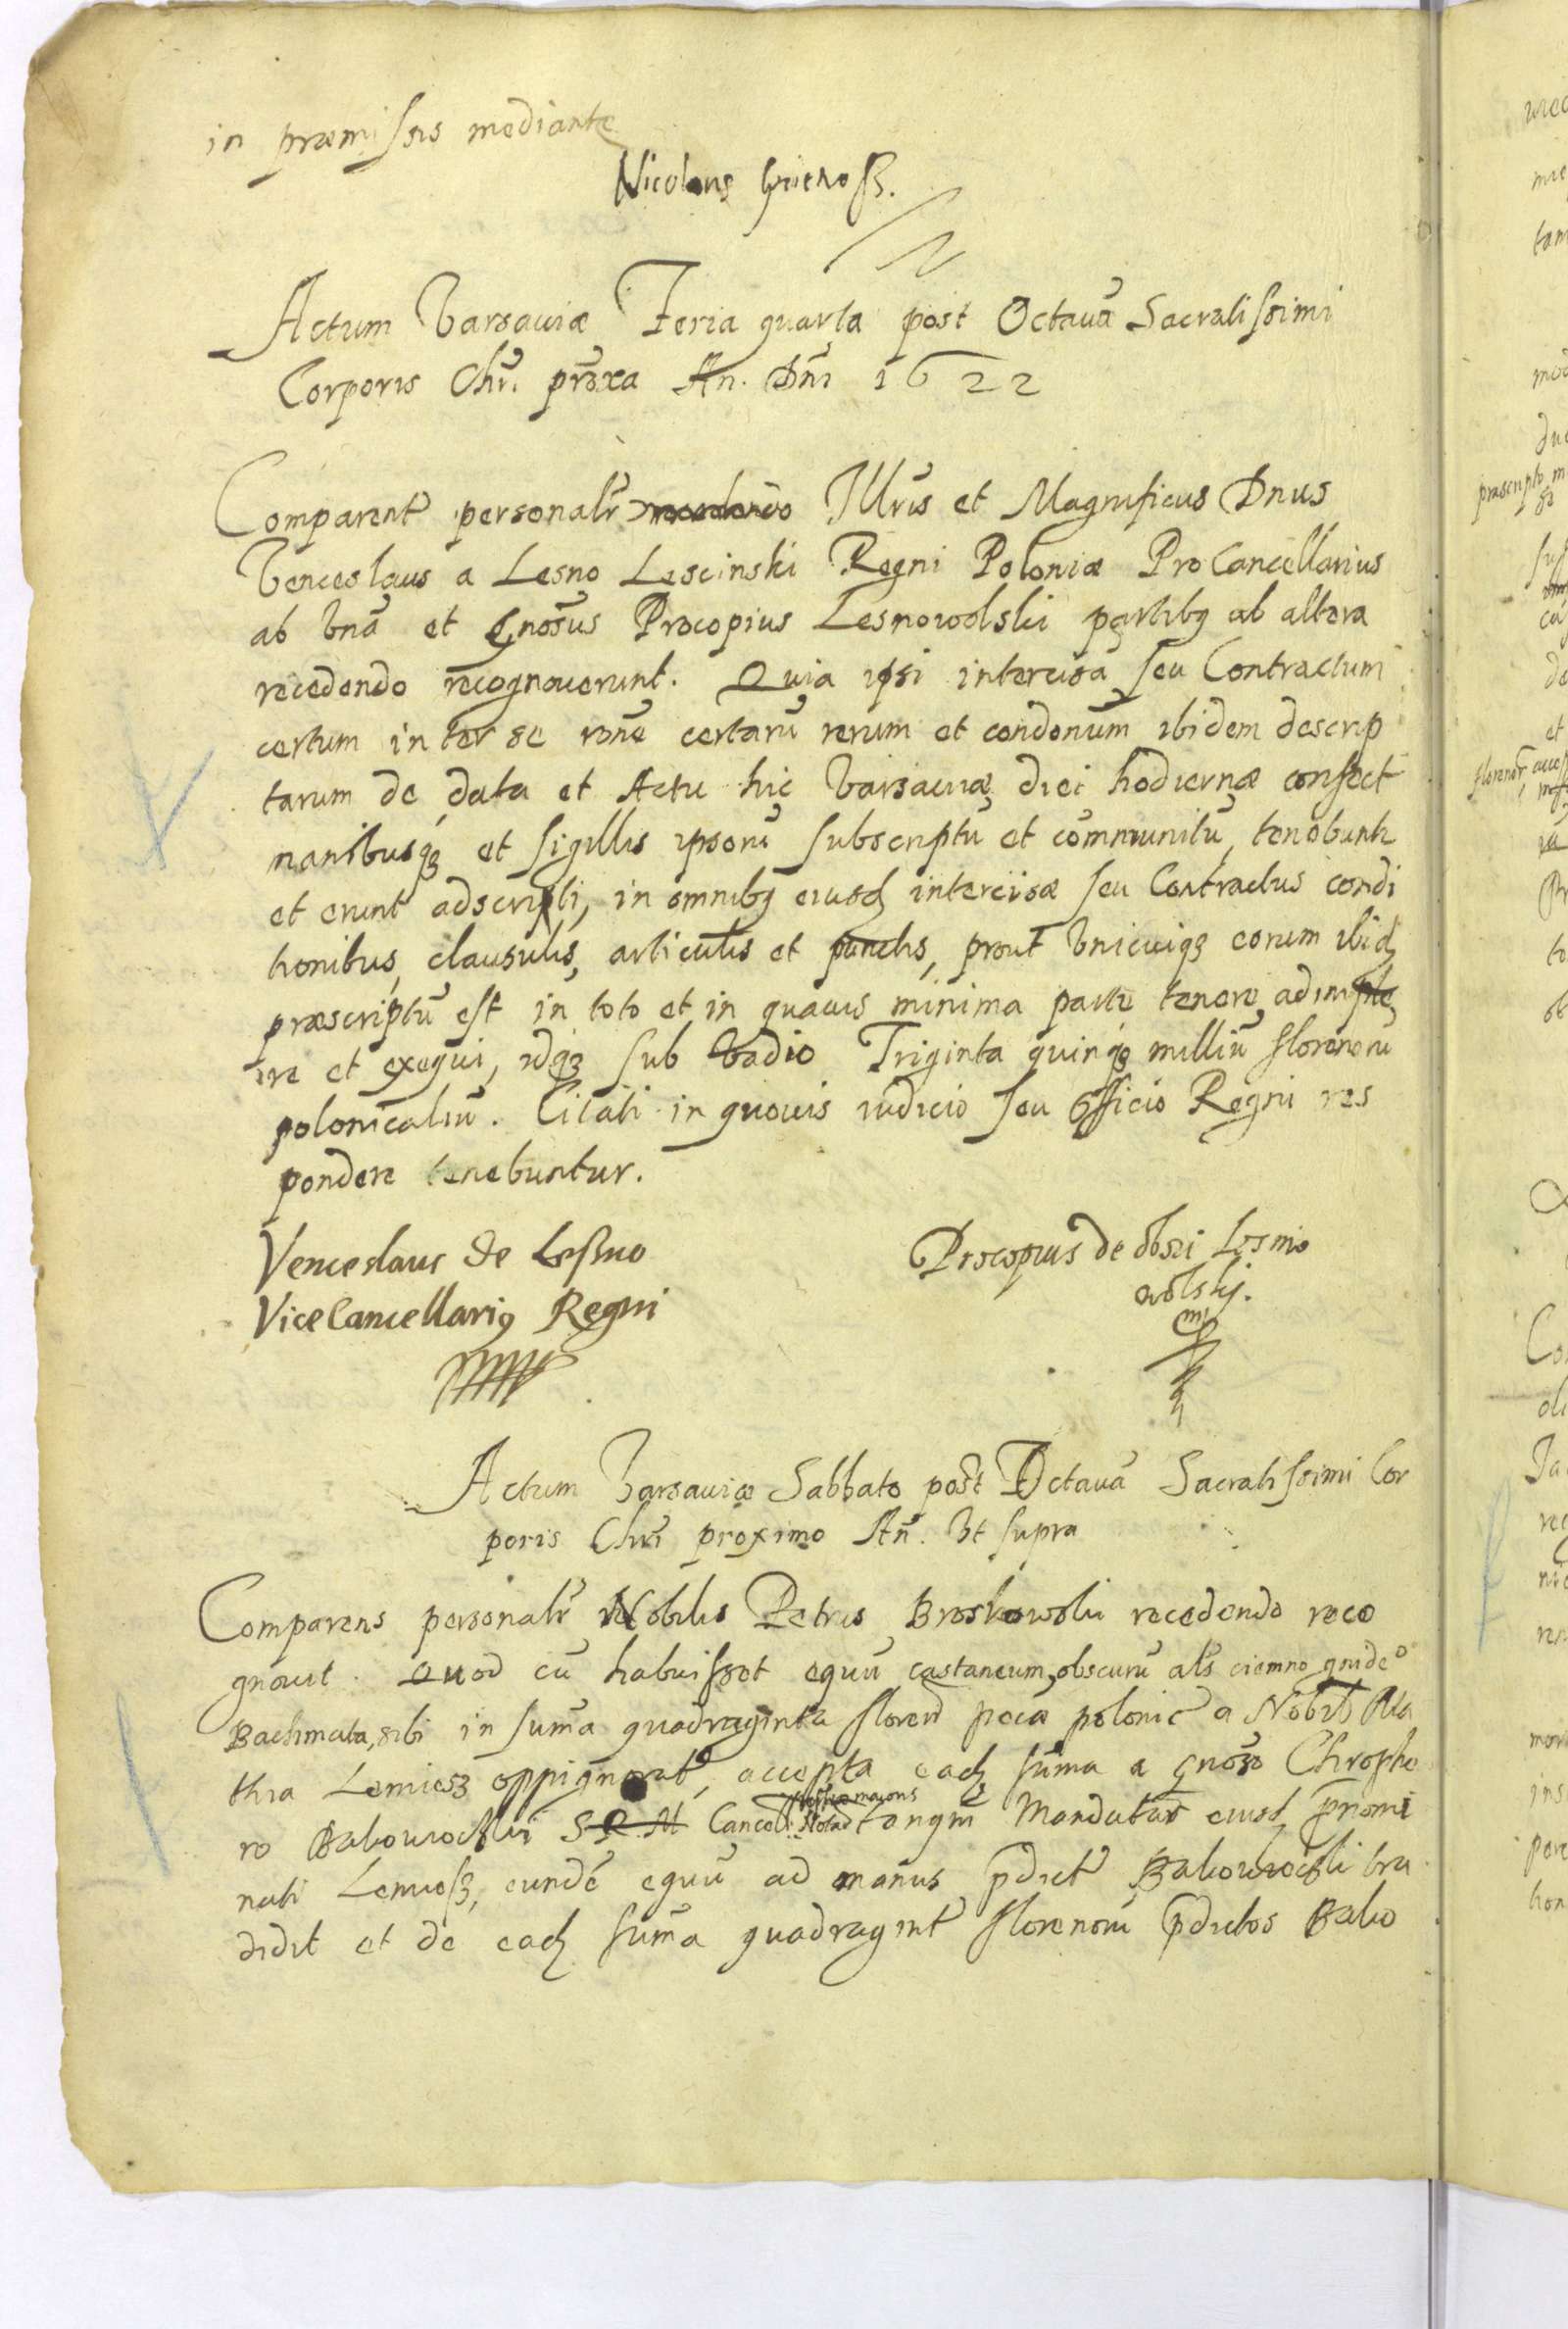 in præmissis mediante
Nicolaus
Actum Varsauiæ Feria quarta post Octauā Sacratissimi
Corporis Chri. proxa An. Dni 1622
Comparent personalr Illris et Magnificus Dnus
Venceslaus a Lesno Lescinski Regni Poloniæ ProCancellarius
ab vnā et Gnosus Procopius Lesnowolski partibꝫ ab altera
recedendo recognouerunt. Quia ipsi intercisā seu Contractum
certum inter se rōne certarū rerum et condonum ibidem descrip
tarum de data et Actu hic Varsauiæ diei hodiernæ confect
manibusqꝫ et sigillis ipsorū subscriptū et communitū, tenebunt
et erunt adscripti, in omnibꝫ eiusd intercisæ seu Contractus condi
tionibus, clausulis, articulis et punctis, prout vnicuiqꝫ eorum ibid
præscriptū est in toto et in quauis minima parte tenere, adimple
ire et exequi, idqꝫ sub vadio Triginta quinqꝫ milliū florenorū
polonicaliū. Citati in quouis iudicio seu Officio Regni res
pondere tenebuntur.
Venceslaus de Leßno
ViceCancellariꝰ Regni
Procopius de obori Lesnio
wolskj.
mp
Actum Varsauiæ Sabbato post Octauā Sacratissimi Cor
poris Chri proximo An. Vt supra
Comparens personalr Nobilis Petrus Broskowski recedendo reco
gnouit. Quod cū habuisset equū castaneum, obscurū als ciemno gnideo
Bachmata, sibi in summa quadraginta floren pecūn polonic a Nobili Ma
thia Lemiesz oppignorat, accepta ead summa a Gnoso Chrosto
ro Bakowoczki S R M Cancell maioris Notar tanqm Mandatar eiusd prnomi
nati Lemiesz, eundē equū ad manus pdict Bakowoczki tra
didit et de ead summa quadragint florenorū pdictos Bako